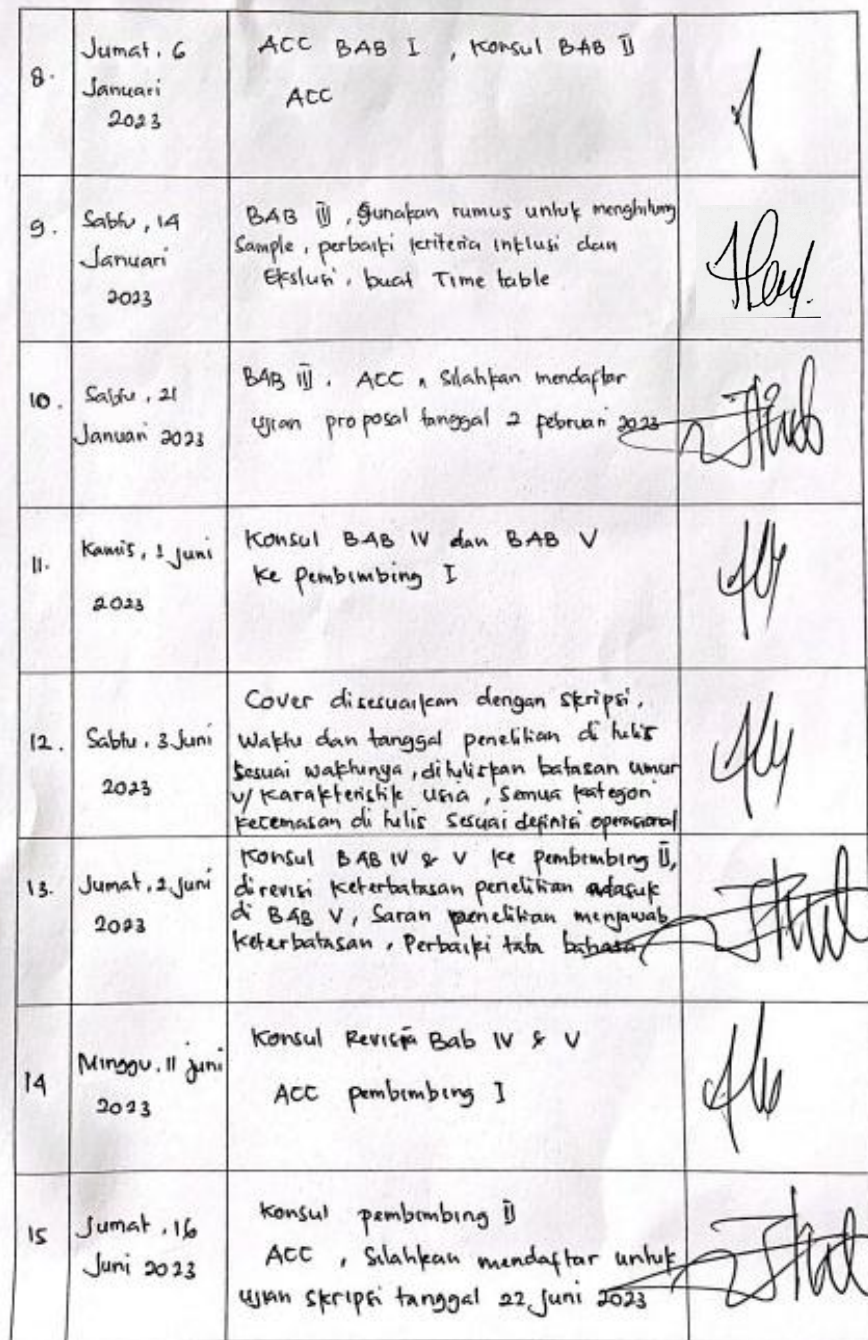 8.
Jumat, 6
Januari
2023
ACC BAB I , Konsul BAB II
ACC
9.
Sabtu, 14
Januari
2023
BAB III, Gunakan rumus untuk menghitung
Sample, perbaiki kriteria inklusi dan
Ekslusi, buat Time table
10.
Sabtu, 21
Januari 2023
BAB III. ACC, Silahkan mendaftar
ujian proposal tanggal 2 pebruari 2023
11.
Kamis, 1 Juni
2023
Konsul BAB IV dan BAB V
ke pembimbing I
12.
Sabtu, 3 Juni
2023
Cover disesuaikan dengan skripsi,
Waktu dan tanggal penelitian di tulis
sesuai waktunya, dituliskan batasan umur
u/ karakteristik usia, semua kategori
kecemasan di tulis sesuai definisi operasional
13.
Jumat, 2 Juni
2023
Konsul BAB IV & V ke pembimbing II,
direvisi keterbatasan penelitian
di BAB V, Saran penelitian menjawab
keterbatasan, Perbaiki tata bahasa
14
Minggu, 11 juni
2023
Konsul Revisi Bab IV & V
ACC pembimbing I
15
Jumat, 16
Juni 2023
Konsul pembimbing II
ACC , Silahkan mendaftar untuk
ujian skripsi tanggal 22 Juni 2023